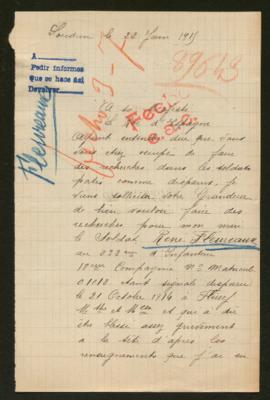 Loudun le 22 Juin 1915
A
Pedir informes
que se hace así
Devolver
Fleureaux
89643
Fecho
A sa Majesté
le Roi d'Espagne
Ayant entendu dire que vous
vous chez occupé de faire
des recherches dans les soldats
portés comme disparus, je
viens solliciter votre Grandeur
de bien vouloir faire des
recherches pour mon mari
le Soldat René Fleureaux
au 322 d'Infanterie
19 Compagnie No Matricule
01012 étant signalé disparu
le 21 Octobre 1914 à
Mthe et Men et qui a du
être blessé assez grièvement
à la tête d'après les
renseignements que j'ai eu